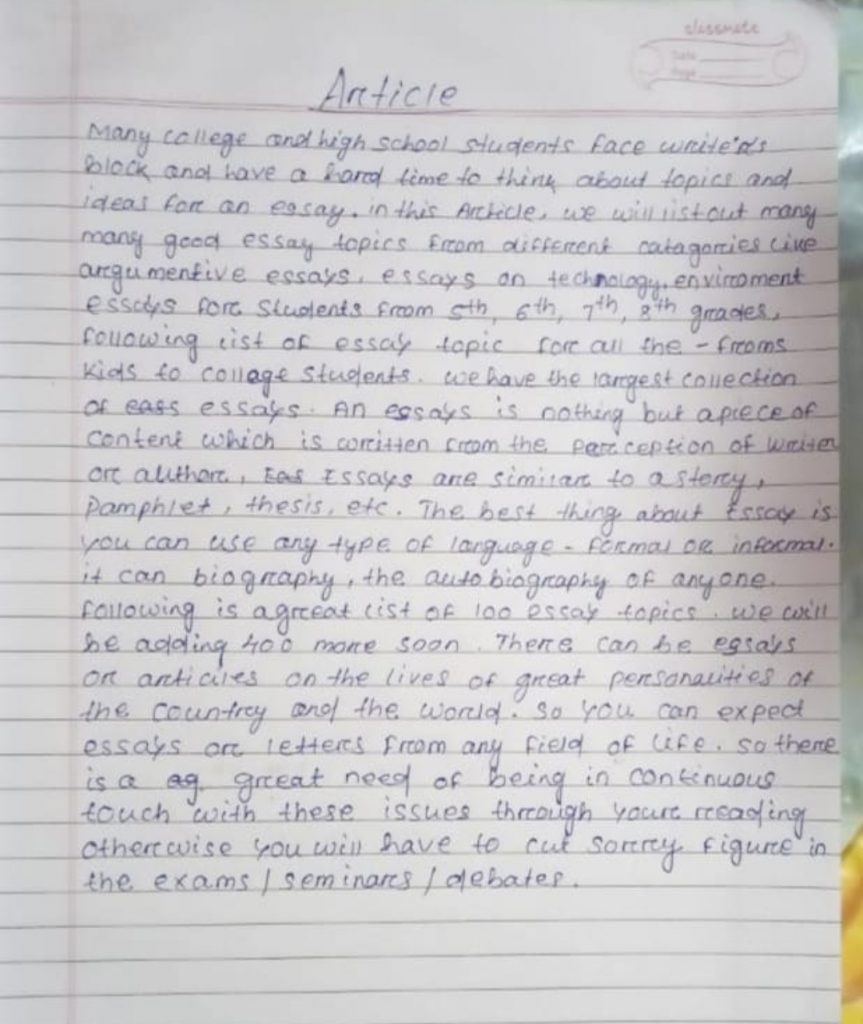 classmate
Date
Page
Article
Many college and high school students face write'rs
block and have a hard time to think about topics and
ideas for an essay. in this Article, we will list out many
many good essay topics from different catagories like
argumentive essays, essays on technology, enviroment
essays for students from 5th, 6th, 7th, 8th grades,
following list of essay topic for all the - froms
kids to collage students. we have the largest collection
of eass essays. An essays is nothing but a piece of
content which is written from the perception of writer
or author, Eas Essays are similar to a story,
Pamphlet, thesis, etc. The best thing about Essay is
you can use any type of language - formal or informal.
it can biography, the autobiography of anyone.
following is a great list of 100 essay topics. we will
be adding 400 more soon. There can be essays
or articles on the lives of great personalities of
the country and the world. So you can expect
essays or letters from any field of life. so there
is a ag great need of being in continuous
touch with these issues through your reading
otherwise you will have to cut sorry figure in
the exams / seminars / debates.